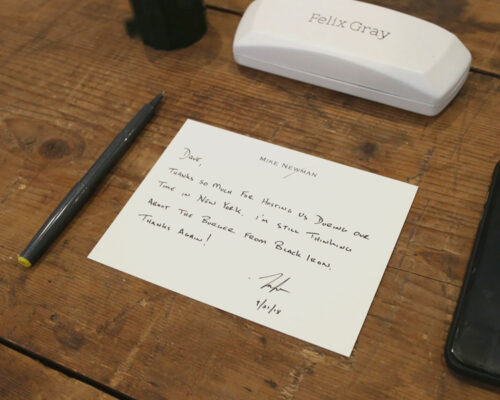 Felix Gray
MIKE NEWMAN
DAVE,
THANKS SO MUCH FOR HOSTING US DURING OUR
TIME IN NEW YORK. I'M STILL THINKING
ABOUT THE BURGER FROM BLACK IRON.
THANKS AGAIN!